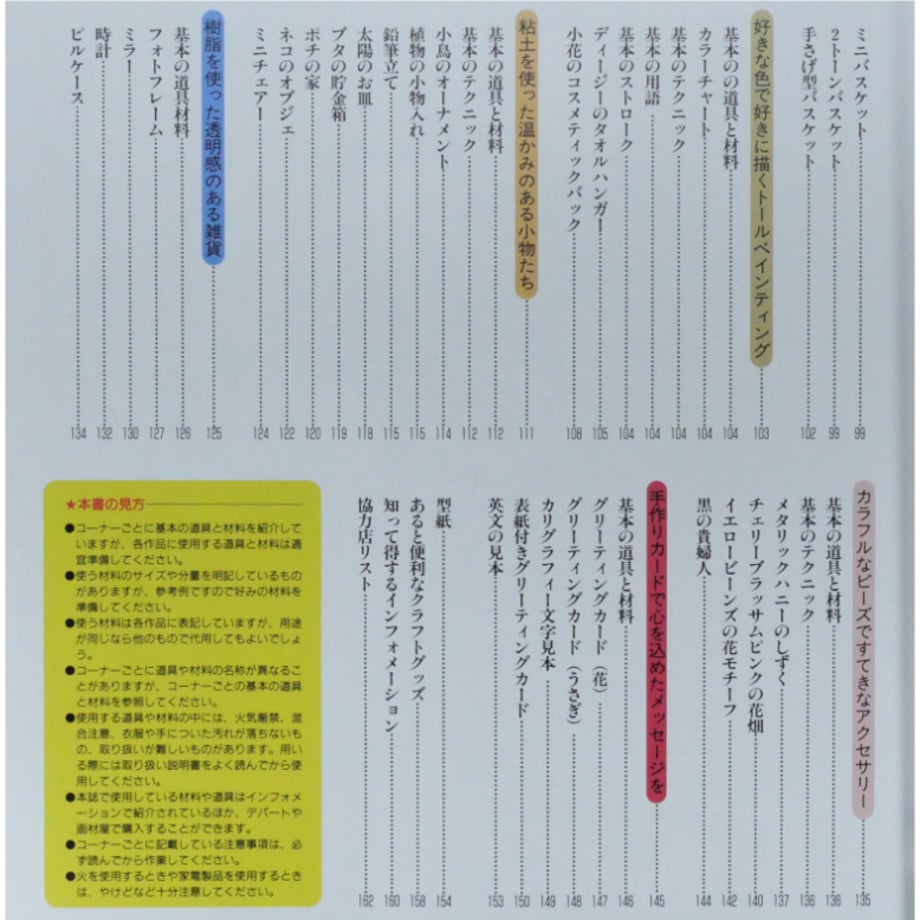 ミニバスケット 99
2トーンバスケット 99
手さげ型バスケット 102
好きな色で好きに描くトールペインティング 103
基本のの道具と材料 104
カラーチャート 104
基本のテクニック 104
基本の用語 104
基本のストローク 104
ディージーのタオルハンガー 105
小花のコスメティックバック 108
粘土を使った温かみのある小物たち 111
基本の道具と材料 112
基本のテクニック 112
小鳥のオーナメント 114
植物の小物入れ 115
鉛筆立て 115
太陽のお皿 118
ブタの貯金箱 119
ポチの家 120
ネコのオブジェ 122
ミニチェアー 124
樹脂を使った透明感のある雑貨 125
基本の道具材料 126
フォトフレーム 127
ミラー 130
時計 132
ピルケース 134
カラフルなビーズですてきなアクセサリー 135
基本の道具と材料 136
基本のテクニック 136
メタリックハニーのしずく 137
チェリーブラッサムピンクの花畑 140
イエロービーンズの花モチーフ 142
黒の貴婦人 144
手作りカードで心を込めたメッセージを 145
基本の道具と材料 146
グリーティングカード（花） 147
グリーティングカード（うさぎ） 148
カリグラフィー文字見本 149
表紙付きグリーティングカード 150
英文の見本 153
型紙 154
あると便利なクラフトグッズ 158
知って得するインフォメーション 160
協力店リスト 162
★本書の見方
●コーナーごとに基本の道具と材料を紹介して
いますが、各作品に使用する道具と材料は適
宜準備してください。
●使う材料のサイズや分量を明記しているもの
がありますが、参考例ですので好みの材料を
準備してください。
●使う材料は各作品に表記していますが、用途
が同じなら他のもので代用してもよいでしょ
う。
●コーナーごとに道具や材料の名称が異なるこ
とがありますが、コーナーごとの基本の道具
と材料を参照してください。
●使用する道具や材料の中には、火気厳禁、混
合注意、衣服や手についた汚れが落ちないも
の、取り扱いが難しいものがあります。用い
る際には取り扱い説明書をよく読んでから使
用してください。
●本誌で使用している材料や道具はインフォメ
ーションで紹介されているほか、デパートや
画材屋で購入することができます。
●コーナーごとに記載している注意事項は、必
ず読んでから作業してください。
●火を使用するときや家電製品を使用するとき
は、やけどなど十分注意してください。